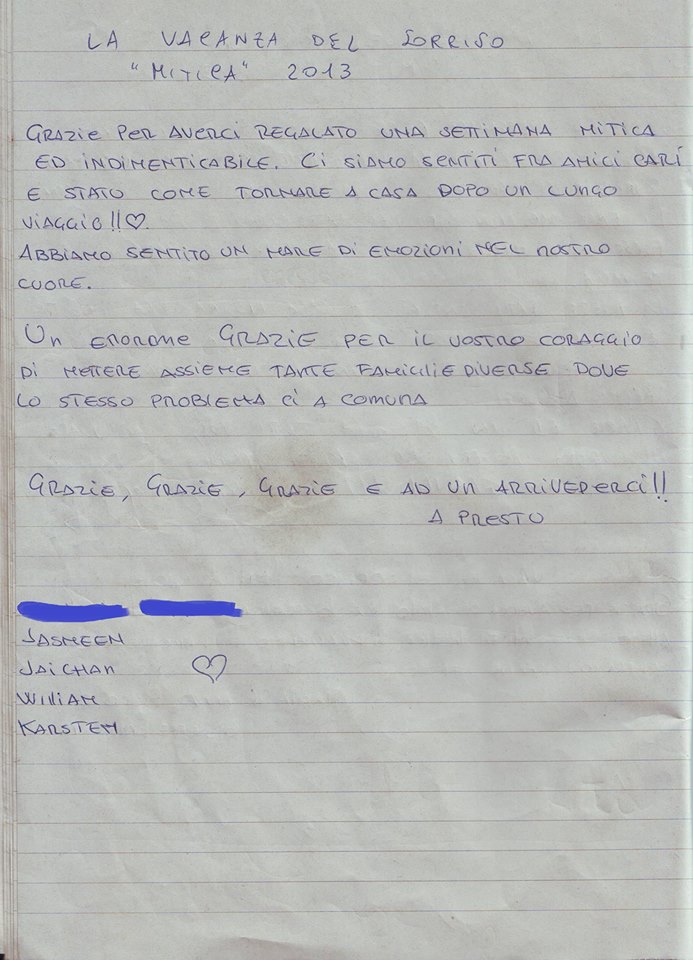 LA VACANZA DEL SORRISO
"MITICA" 2013
GRAZIE PER AVERCI REGALATO UNA SETTIMANA MITICA
ED INDIMENTICABILE. Ci SIAMO SENTITI FRA AMICI CARI
E STATO COME TORNARE A CASA DOPO UN LUNGO
VIAGGIO!!♡.
ABBIAMO SENTITO UN MARE Di EMOZIONI NEL NOSTRO
CUORE.
UN ENORME GRAZIE PER IL VOSTRO CORAGGIO
Di METTERE ASSIEME TANTE FAMIGLIE DIVERSE DOVE
LO STESSO PROBLEMA Ci A COMUNA
GRAZIE, GRAZIE, GRAZIE E AD UN ARRIVEDERCI!!
A PRESTO
JASMEEN
JAICHAN ♡
WILLIAM
KARSTEN